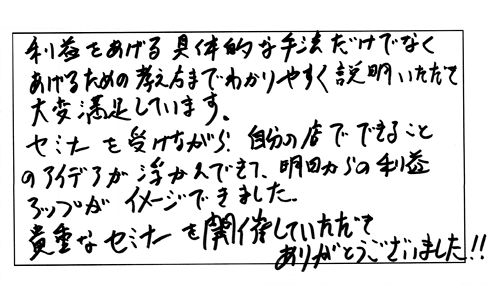 利益をあげる具体的な手法だけでなく
あげるための考え方までわかりやすく説明いただて
大変満足しています。
セミナーを受けながら、自分の店でできること
のアイデアが浮かんできて、明日からの利益
アップがイメージできました。
貴重なセミナーを開催していただき
ありがとうございました!!